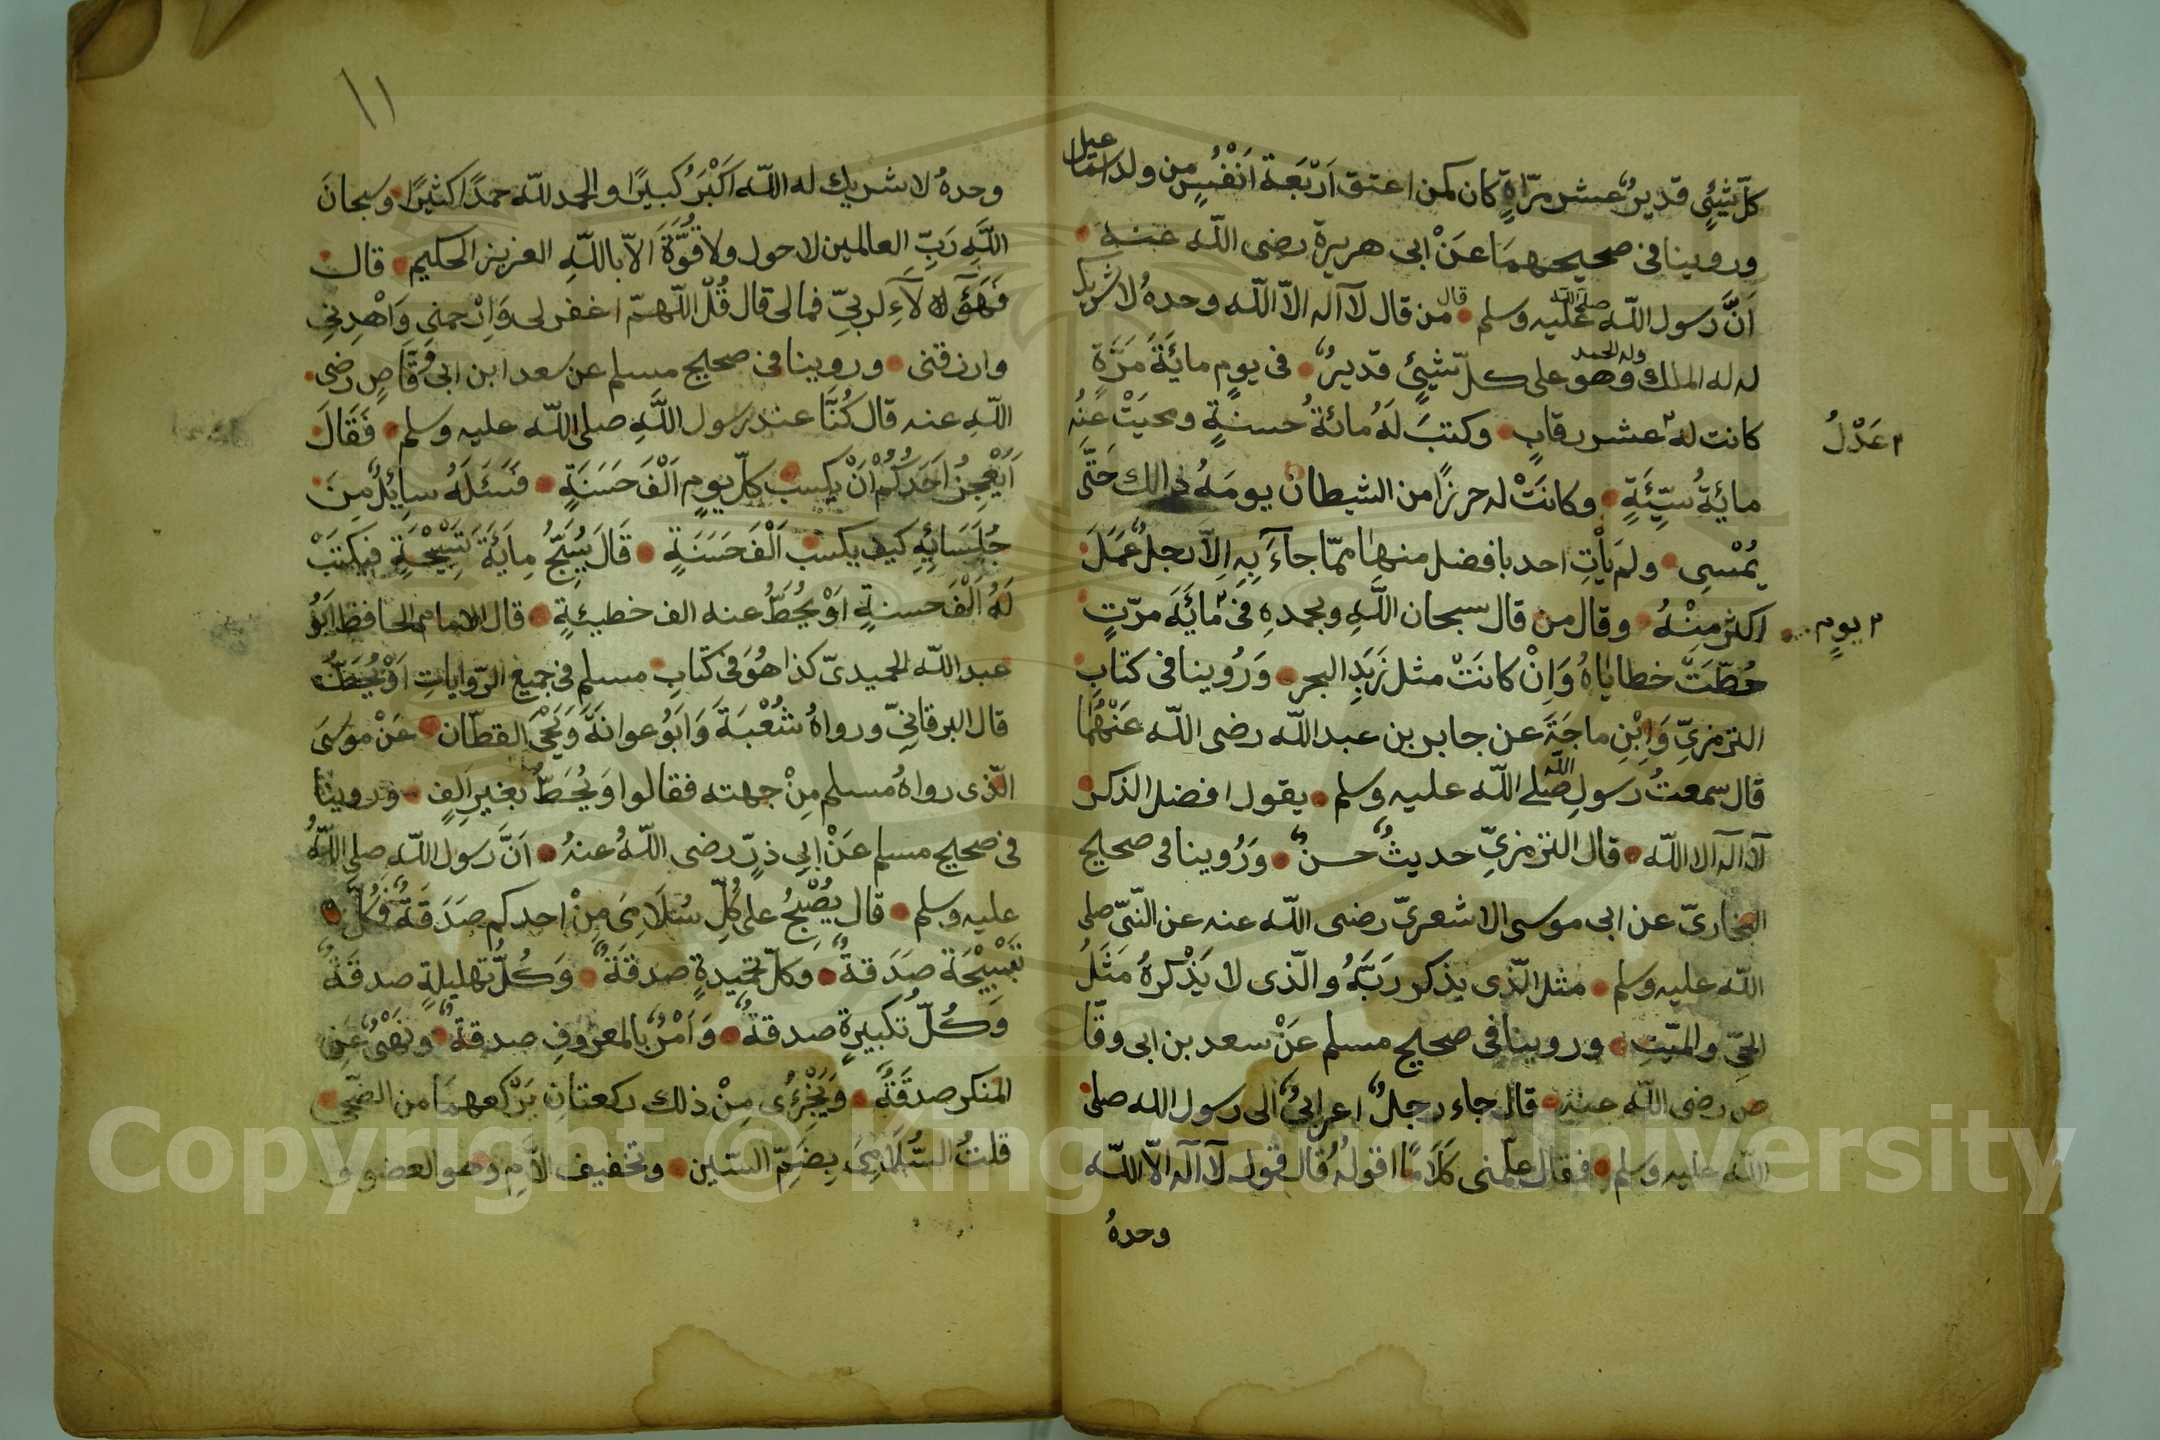 كلّ شئٍ قديرٌ عشر مرّاةٍ كان كمن اعتق اَرْبَعة اَنْفُسٍ من ولد اسماعيل
وروينا فى صحيحهمَا عَنْ ابى هريرة رضى اللّه عنه
اَنَّ رسول اللّه صلى اللّه عليه وسلم قال من قال لآ اله الاّ اللّه وحدهُ لا شريك
له له الملك وله الحمد وهو على كلّ شيئٍ قديرٌ فى يومٍ مائَةَ مَرَّةٍ
كانت له عشر رقابٍ وكتبَ لَهُ مائةُ حسنةٍ ومحيَتْ عَنْهُ
عَدْلُ
مائةُ سيِّئَةٍ وكانَتْ له حرزًا من الشيطان يومَهُ ذالك حَتَّى
يُمْسِى ولم يأْتِ احد بافضل منها ممّا جآءَ بِهِ اِلاَّ رجلٌ عَمَلَ
اكثر مِنْهُ وقال من قال سبحان اللَّهِ وبحمدهِ فى مائَةَ مرّتٍ
يومٍ
حُطّتَتْ خطاياهُ وَاِنْ كانَتْ مثل زَبَدِ البحر وَرُوينا فى كتابِ
الترمزىِّ وَابْنِ ماجَةَ عن جابر بن عبد اللّه رضى اللّه عَنْهُمَا
قال سمعتُ رسولِ اللّه صلى اللّه عليه وسلم يقول افضل الذكر
لآ اله الا اللّه قال الترمزىِّ حديثٌ حسنٌ وَرُوينا فى صحيح
البخارىّ عن ابى موسى الاشعرىّ رضى اللّه عنه عن النّبىّ صلى
اللّه عليه وسلم مثل الّذى يذكر رَبَّهُ والّذى لا يَذْكرهُ مَثَلُ
الحىّ والميّتِ وروينا فى صحيح مسلم عَنْ سعد بن ابى وقّا
ص رضى اللّه عنه قال جاء رجلٌ اعرابىٌّ الى رسول اللّه صلى
اللّه عليه وسلم فقال علّمنى كَلَامًا اقولهُ قال قول لآ اله الاّ اللّه
وحدهُ
١١
وحدهُ لا شريك له اللّه اَكْبَرُ كبيرًا والحمد للّه حمدًا كثيرًا وسبحانَ
اللَّهِ رَبِّ العالمين لا حول ولا قُوَّةَ اَلاّ باللَّهِ العزيز الحكيم قال
فَهَؤُلآءِ لربىِّ فمالى قال قُلْ اللّهمّ اغفر لى وَاِرْحمنى وَاهْدِنى
وارزقنى وروينا فى صحيح مسلم عن سعد ابن ابى وَقَّاصٍ رضى
اللّهِ عنه قال كُنَّا عند رسول اللَّهِ صلى اللّه عليه وسلم فَقَالَ
اَيَعْجِزُ اَحَدُكُمْ اَنْ يكسب كلّ يومٍ اَلْفَ حَسَنَةٍ فَسَئَلَهُ سائِلٌ مِنَ
جُلَسَائِهِ كيف يكسب اَلْفَ حَسَنَةٍ قَالَ يُسَبِّحُ مِائَةَ تَسْبِيْحَةٍ فيكتبْ
لَهُ اَلْفَ حسنةٍ اَوْ يُحَطُّ عنه الف خطيئةٍ قال الامام الحافظ اَبُو
عبد اللّه الحميدىّ كذا هُوَ فى كتابِ مسلمٍ فى جميع الرّواياتِ اَوْ يُحَطُّ
قال البرقانىّ ورواهُ شُعْبَةَ وَاَبُو عوانَةَ وَيَحْيَى القطّان عَنْ مُوسَى
الّذى رواهُ مُسلم مِنْ جهته فقالوا وَيُحَطُّ بغير اَلِفٍ وروينا
فى صحيح مسلم عَنْ ابى ذرٍّ رضى اللّهُ عنهُ اَنَّ رسول اللّهِ صلى اللّهُ
عليه وسلم قال يُصْبِحُ على كُلِّ سُلَامِىَ مِنْ احدكم صَدَقَةٌ فَكُلُّ
تَسْبِيْحَة صَدَقةٌ وكلّ تحميدةٍ صدقَةٌ وَكُلُّ تهليلةٍ صدقَةٌ
وَكُلُّ تكبيرةٍ صدقةٌ وَاَمْرٌ بالمعْرُوفِ صدقةٌ وَنَهْىٌ عَنِ
المنكر صدَقَةٌ وَيُجْزِئُى مِنْ ذلك ركعتانِ يَرْكعهمَا من الضّحى
قلتُ السُّلَامِىَ بِضَمِّ السّين وتخفيف الاَّمِ وهو العضو و